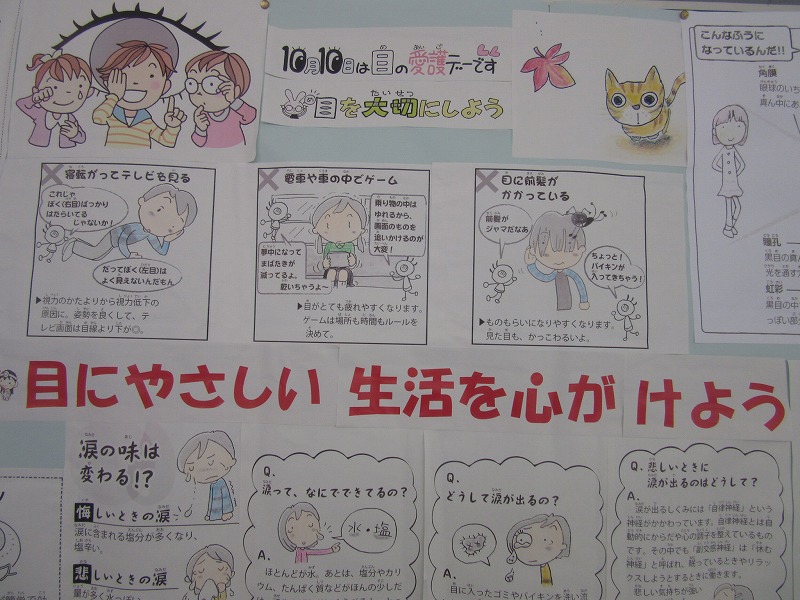 10月10日は目の愛護デーです
目を大切にしよう
こんなふうに
なっているんだ!!
角膜
眼球のいち
真ん中にあ
瞳孔
黒目の真ん
光を通す
虹彩
黒目の中
っぽい部
寝転がってテレビを見る
これじゃ
ぼく(右目)ばっかり
はたらいてる
じゃないか!
だってぼく(左目)は
よく見えないんだもん
▶視力のかたよりから視力低下の
原因に。姿勢を良くして、テ
レビ画面は目線より下が◎。
電車や車の中でゲーム
乗り物の中は
ゆれるから、
画面のものを
追いかけるのが
大変!
夢中になって
まばたきが
減ってるよ。
乾いちゃうよ~
▶目がとても疲れやすくなります。
ゲームは場所も時間もルールを
決めて。
目に前髪が
かかっている
前髪が
ジャマだなあ
ちょっと!
バイキンが
入ってきちゃう!
▶ものもらいになりやすくなります。
見た目も、かっこわるいよ。
目にやさしい 生活を心がけよう
涙の味は
変わる!?
悔しいときの涙
涙に含まれる塩分が多くなり、
塩辛い。
悲しいときの涙
Q.
涙って、なにでできてるの?
水・塩
A.
ほとんどが水。あとは、塩分やカリ
ウム、たんぱく質などがほんの少しだ
Q.
どうして涙が出るの?
A.
目に入ったゴミやバイキンを洗い流
Q. 悲しいときに
涙が出るのはどうして?
A.
涙が出るしくみには「自律神経」という
神経がかかわっています。自律神経とは自
動的にからだや心の調子を整えているもの
です。その中でも「副交感神経」は「休む
神経」と呼ばれ、眠っているときやリラッ
クスしようとするときに働きます。
悲しい気持ちが強い